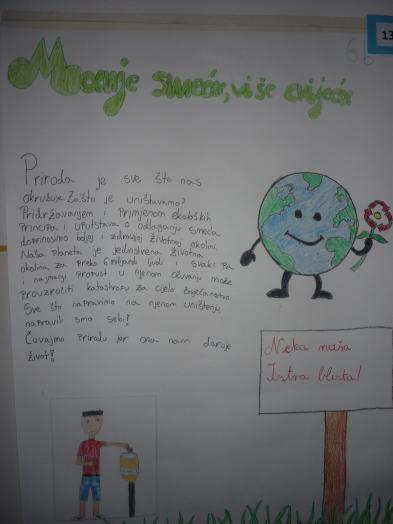 13
6b
Manje smeća, više cvijeća
Priroda je sve što nas
okružuje. Zašto je uništavamo?
Pridržavanjem i primjenom ekoloških
principa i uputstava o odlaganju smeća
doprinosimo boljoj i zdravijoj životnoj okolini.
Naša planeta je jedinstvena životna
okolina za preko 6 milijardi ljudi i svaki pa
i najmanji propust u njenom očuvanju može
prouzročiti katastrofu za cijelo čovječanstvo.
Sve što napravimo na njenom uništenju,
napravili smo sebi!
Čuvajmo prirodu jer ona nam daruje
život!
Neka naša
Istra blista!